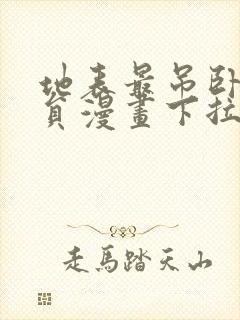 地表最吊臥
貢漫畫下拉
走馬踏天山